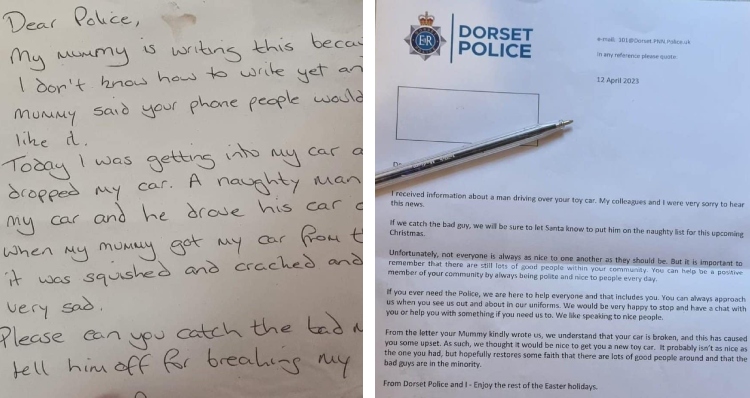 Dear Police,
My mummy is writing this becau
I don't know how to write yet an
mummy said your phone people would
like it.
Today I was getting into my car a
dropped my car. A naughty man
my car and he drove his car o
when my mummy got my car from t
it was squished and cracked and
very sad.
Please can you catch the bad m
tell him off for breaking my
DORSET
POLICE
e-mail: 101@Dorset.PNN.Police.uk
In any reference please quote
12 April 2023
I received information about a man driving over your toy car. My colleagues and I were very sorry to hear
this news.
If we catch the bad guy, we will be sure to let Santa know to put him on the naughty list for this upcoming
Christmas.
Unfortunately, not everyone is always as nice to one another as they should be. But it is important to
remember that there are still lots of good people within your community. You can help be a positive
member of your community by always being polite and nice to people every day.
If you ever need the Police, we are here to help everyone and that includes you. You can always approach
us when you see us out and about in our uniforms. We would be very happy to stop and have a chat with
you or help you with something if you need us to. We like speaking to nice people.
From the letter your Mummy kindly wrote us, we understand that your car is broken, and this has caused
you some upset. As such, we thought it would be nice to get you a new toy car. It probably isn't as nice as
the one you had, but hopefully restores some faith that there are lots of good people around and that the
bad guys are in the minority.
From Dorset Police and I - Enjoy the rest of the Easter holidays.